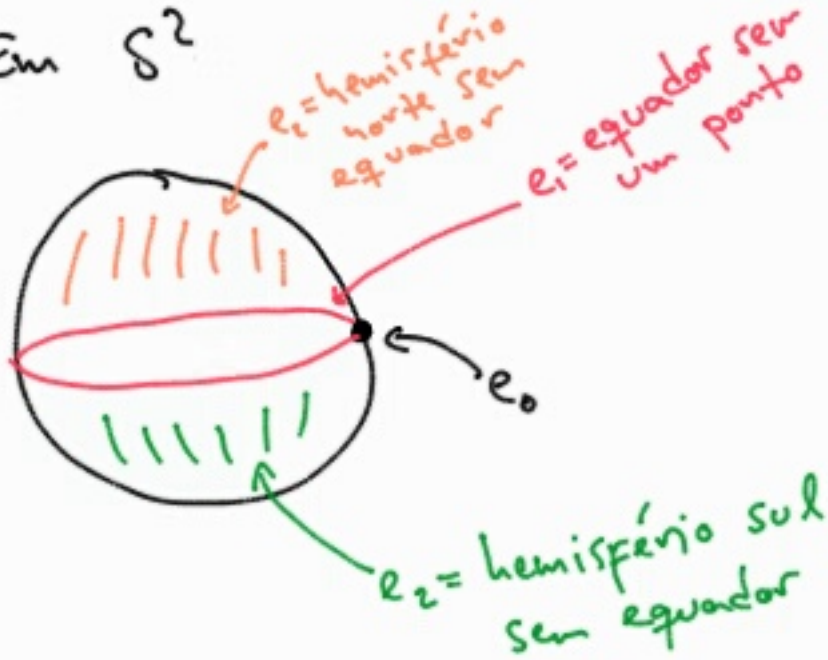 Em S²
e₂ = hemisfério
norte sem
equador
e₁ = equador sem
um ponto
e₀
e₂ = hemisfério sul
sem equador